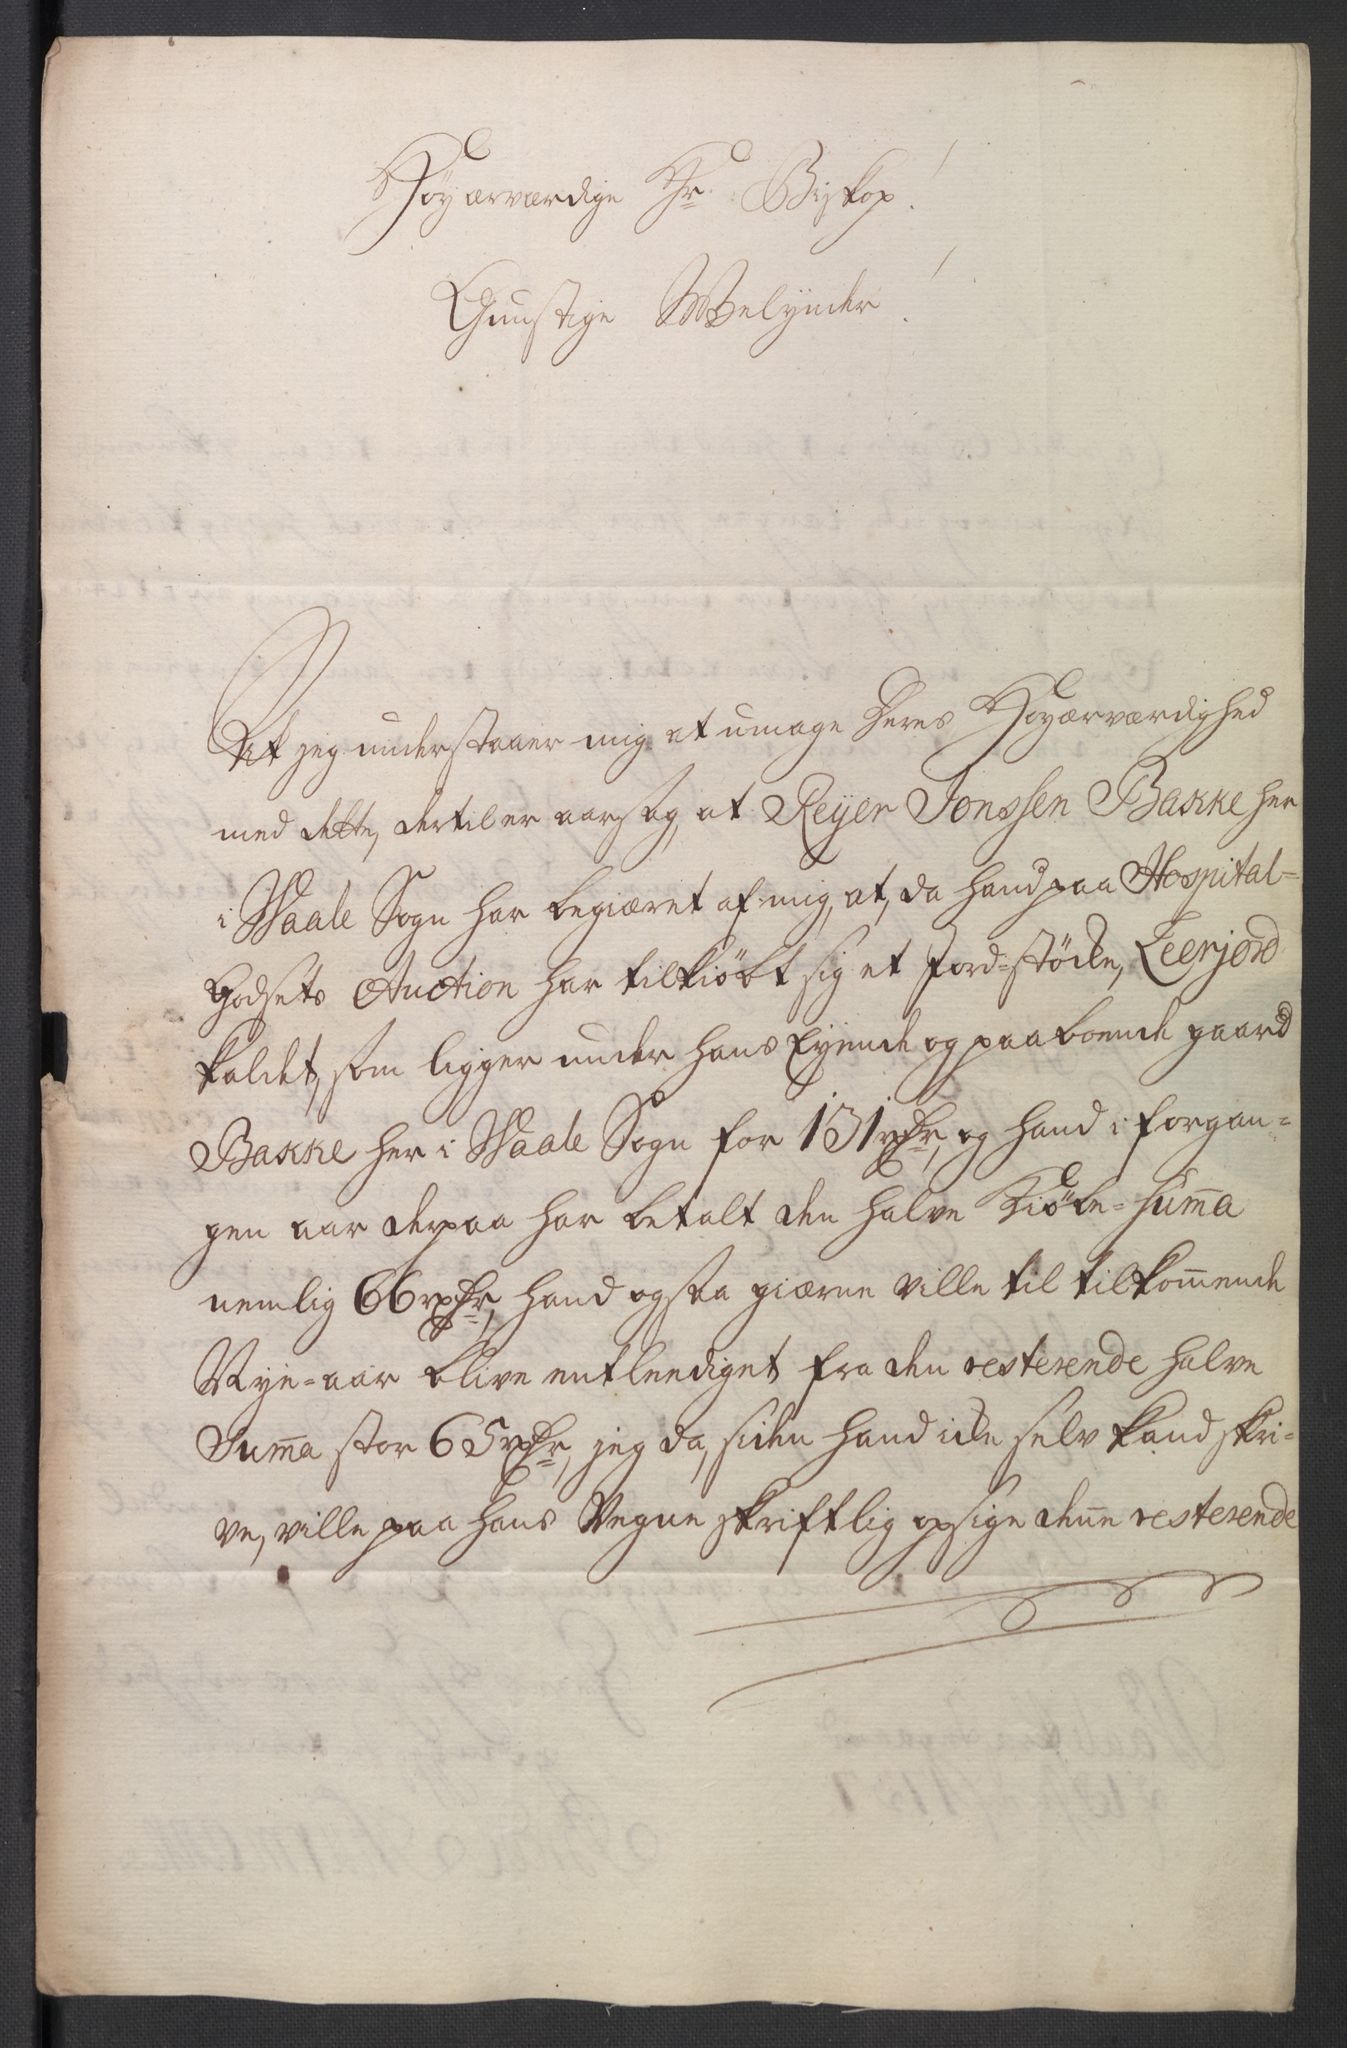 Høyærværdige Hr. Biskop!
Gunstige Welynder!
At jeg understaaer mig at umage Deres Høyærværdighed
med dette, dertil er aarsag, at Reyer Jonssen Bakke her
i Waale Sogn har begiæret af mig, at, da hand paa Hospital-
Godsets Auction har tilkiöbt sig et Jord-støcke, Leerjord
kaldet, som ligger under hans Eyende og paaboende gaard
Bakke her i Waale Sogn for 131 rdr, og hand i forgan-
gen aar derpaa har betalt den halve Kiöbe-Summa
nemlig 66 rdr, hand ogsaa giærne ville til tilkommende
Nye-aar blive entlediget fra den resterende halve
Summa stor 65 rdr, jeg da, siden hand icke selv kand skri-
ve, ville paa hans Vegne skriftlig opsige denne resterende